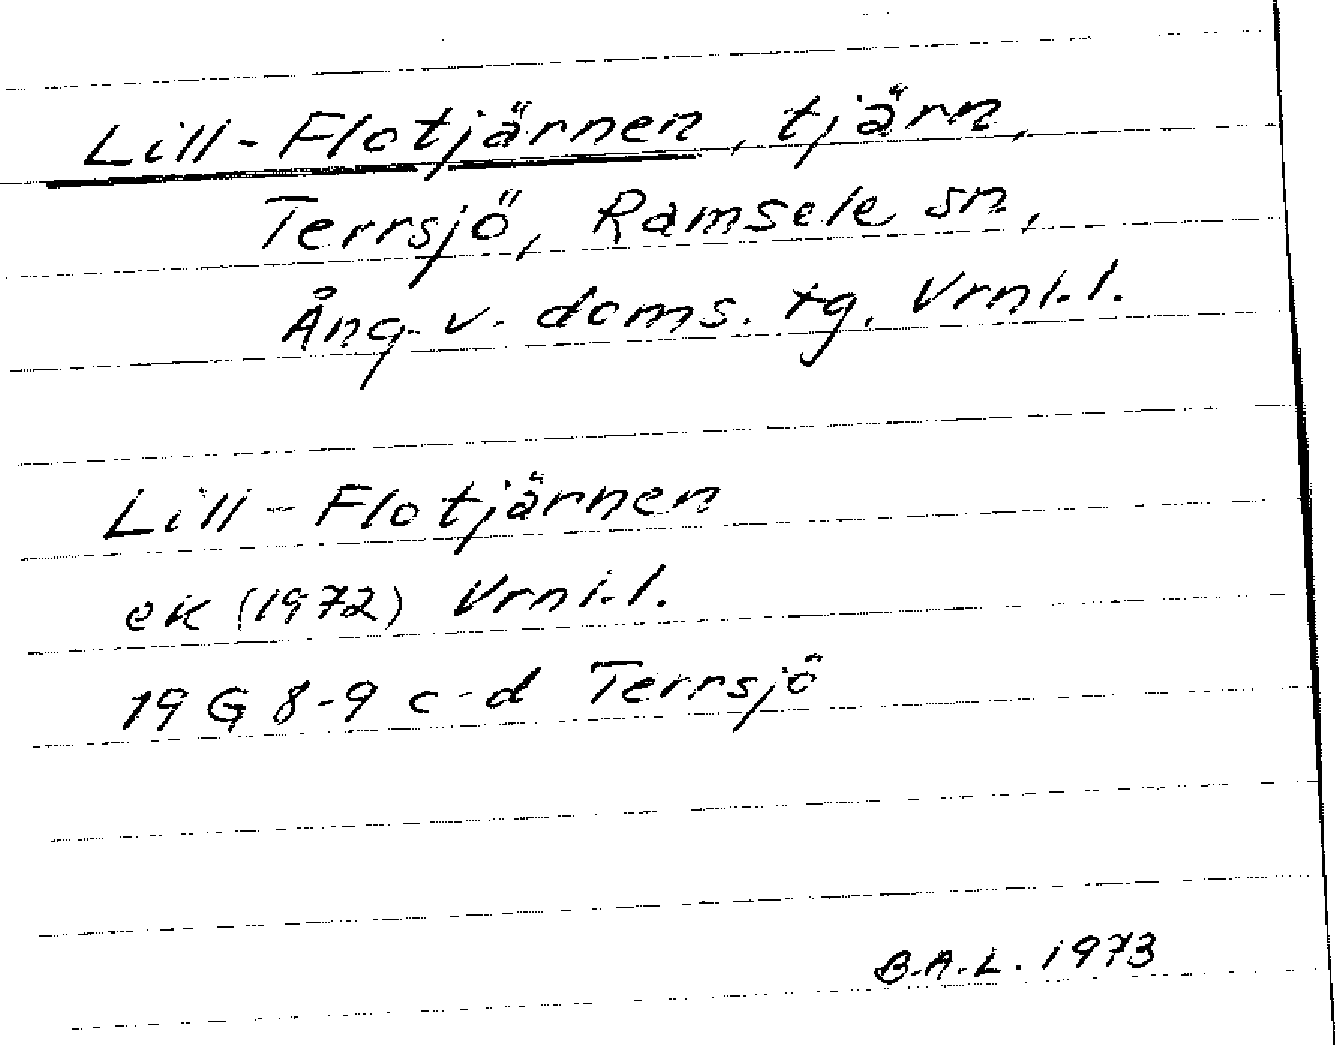 Lill-Flotjärnen, tjärn,
Terrsjö, Ramsele sn,
Ång. v. doms. tg. Vrnl.l.
Lill-Flotjärnen
ek (1972) Vrnl.l.
19 G 8-9 c-d Terrsjö
B.A.L. 1973